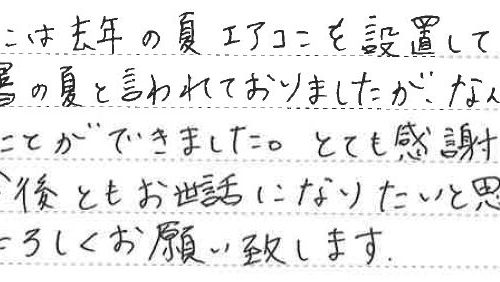 には去年の夏エアコンを設置して
暑の夏と言われておりましたが、なん
ことができました。とても感謝
今後ともお世話になりたいと思
よろしくお願い致します.